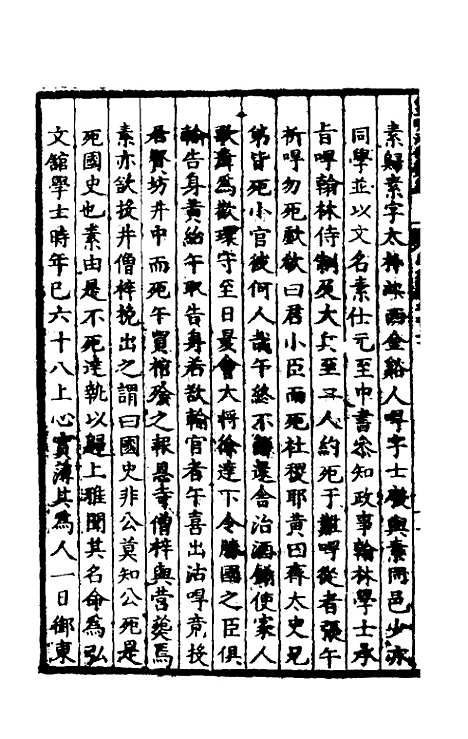 素歸素字太朴江西金谿人哻字士廣與素同邑少亦
同學並以文名素仕元至中書叅知政事翰林學士承
旨哻翰林侍制及大兵至二人約死于難哻從者張午
祈哻勿死歔欷曰君小臣而死社稷耶黃曰齊太史兄
弟皆死小官彼何人哉午終不還舍治酒餚使家人
歌舞爲歡環守至日晏會大將徐達下令勝國之臣俱
輸告身黃紿午取告身若欲輸官者午喜出沽哻竟投
居賢坊井中而死午買棺殮之報恩寺僧梓與營葬焉
素亦欲投井僧梓挽出之謂曰國史非公莫知公死是
死國史也素由是不死達執以歸上雅聞其名命爲弘
文舘學士時年已六十八上心實薄其爲人一日御東